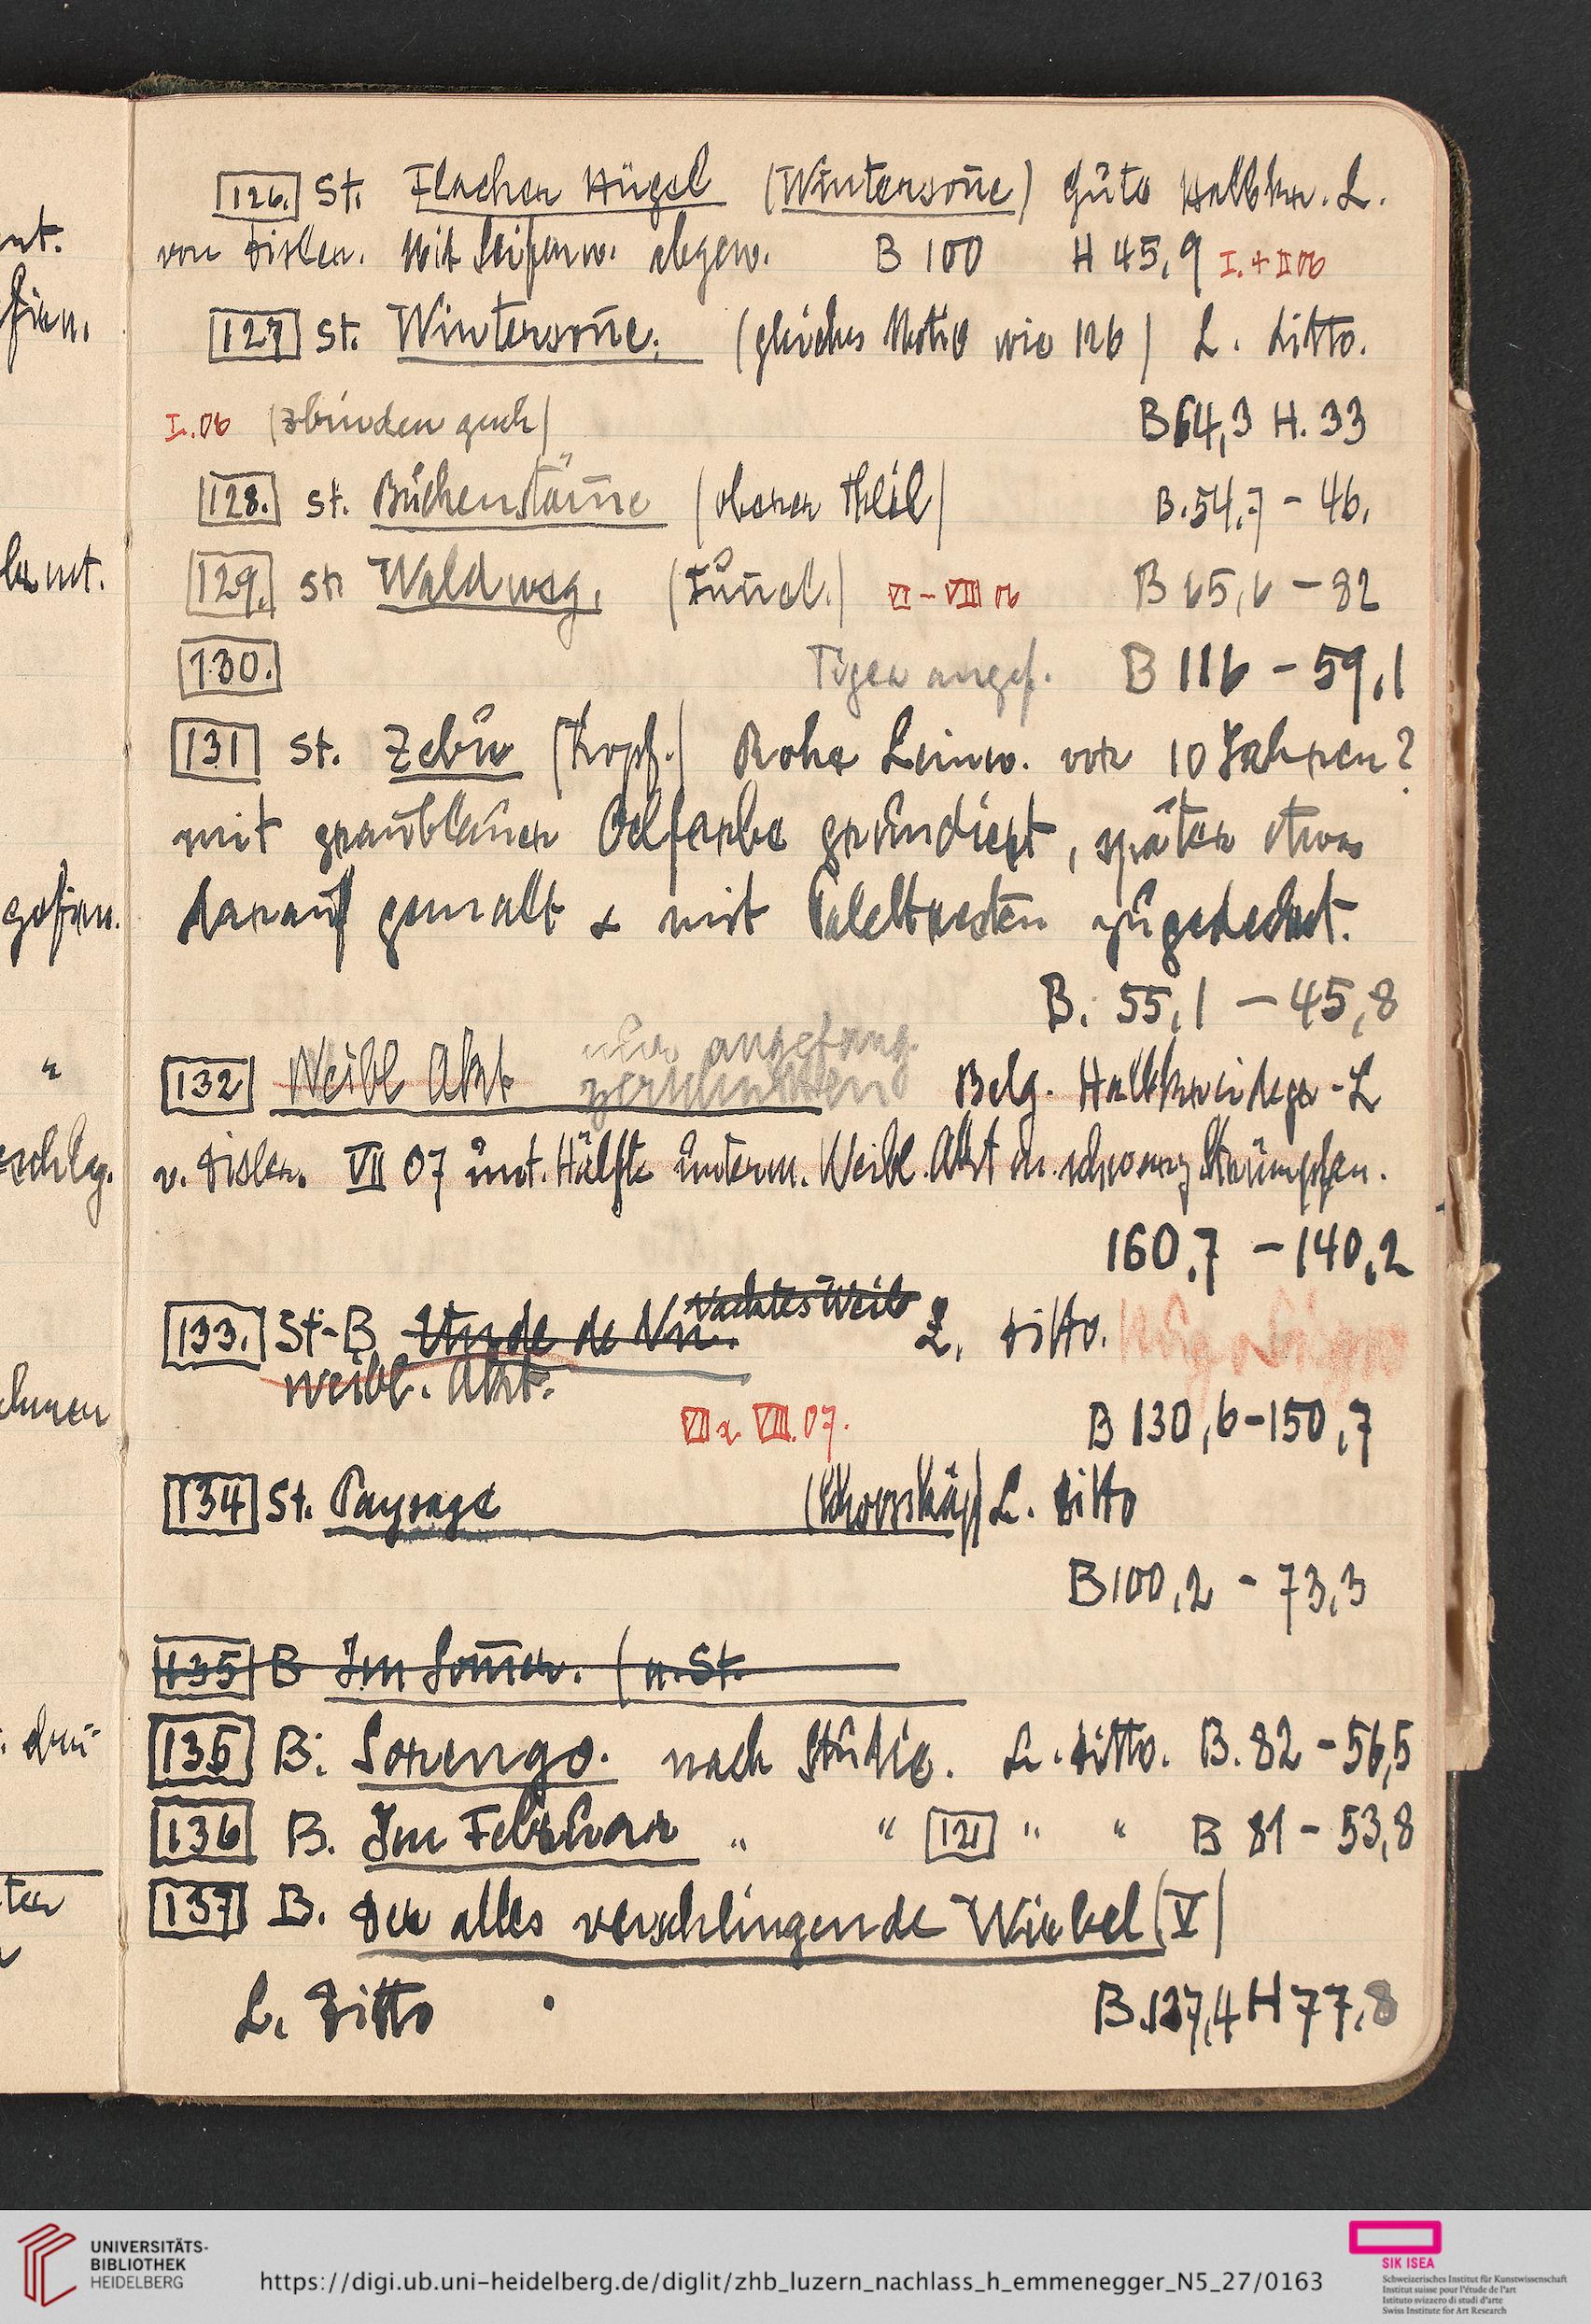 126. St. Flacher Hügel (Wintersoñe) Gute Halbkr. L.
von Disler. Mit Seifenw. abgew. B 100 H 45,9 I. + II 06
127 St. Wintersoñe. (gleiches Motiv wie 126) L. ditto.
I. 06 (Zbinden gesch) B 64,3 H. 33
128. St. Buchenstäm̄e (oberer Theil) B. 54,7 - 46.
129. St. Waldweg. (Tuñel.) VI - VIII 06 B 65,6 - 82
130. Tiger angef. B 116 - 59,1
131 St. Zebu (Kopf.) Rohe Leinw. vor 10 Jahren?
mit graublauer Oelfarbe grundiert, später etwas
darauf gemalt & mit Palettresten zugedeckt.
B. 55,1 - 45,8
nur angefang.
132 Weibl Akt zerschnitten Belg. Halbkreidegr - L
v. Disler. VII 07 unt. Hälfte unterm. Weibl. Akt m. schwarz Strümpfen.
160,7 - 140,2
Nacktes Weib
133. St - B Etude de Nu. L. ditto.
weibl. Akt.
VII & VIII. 07. B 130,6 - 150,7
134 St. Paysage L. ditto
B 100,2 - 73,3
135 B Im Som̄er. (n. St.
135 B. Sorengo. nach Studie. L. ditto. B. 82 - 56,5
136 B. Im Februar " " 121 " " B 81 - 53,8
137 B. Der alles verschlingende Wirbel (V)
L. Ditto B. 127,4 H 77,8
nt.
lmt.
"
schlg.
ter
UNIVERSITÄTS-
BIBLIOTHEK
HEIDELBERG
https://digi.ub.uni-heidelberg.de/diglit/zhb_luzern_nachlass_h_emmenegger_N5_27/0163
SIK ISEA
Schweizerisches Institut für Kunstwissenschaft
Institut suisse pour l'étude de l'art
Istituto svizzero di studi d'arte
Swiss Institute for Art Research